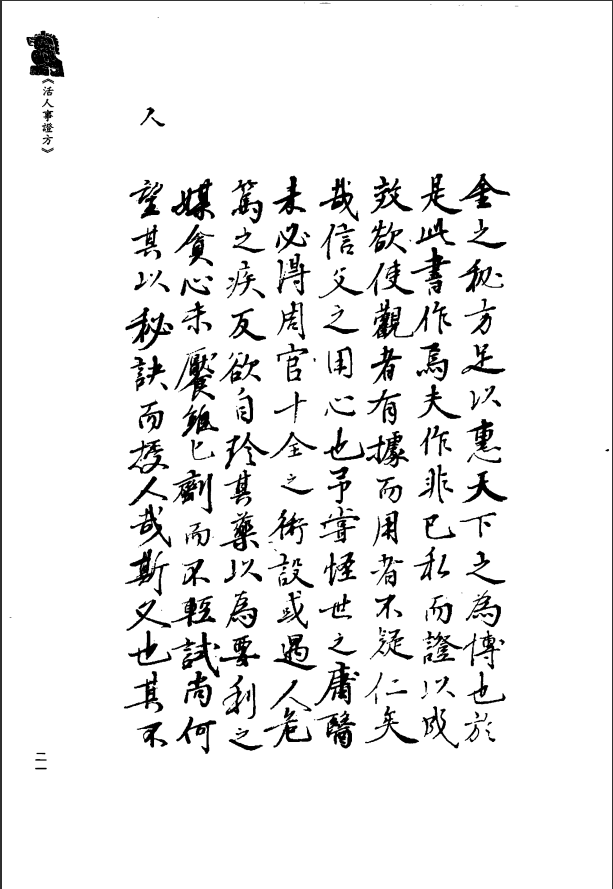 《活人事證方》
金之秘方足以惠天下之為博也於
是此書作焉夫作非已私而證以成
效欲使觀者有據而用者不疑仁矣
哉信父之用心也予嘗怪世之庸醫
未必得周官十全之術設或遇人危
篤之疾反欲自珍其藥以為要利之
媒貪心未饜雖匕劑而不輕試尚何
望其以秘訣而授人哉斯文也其不
二一